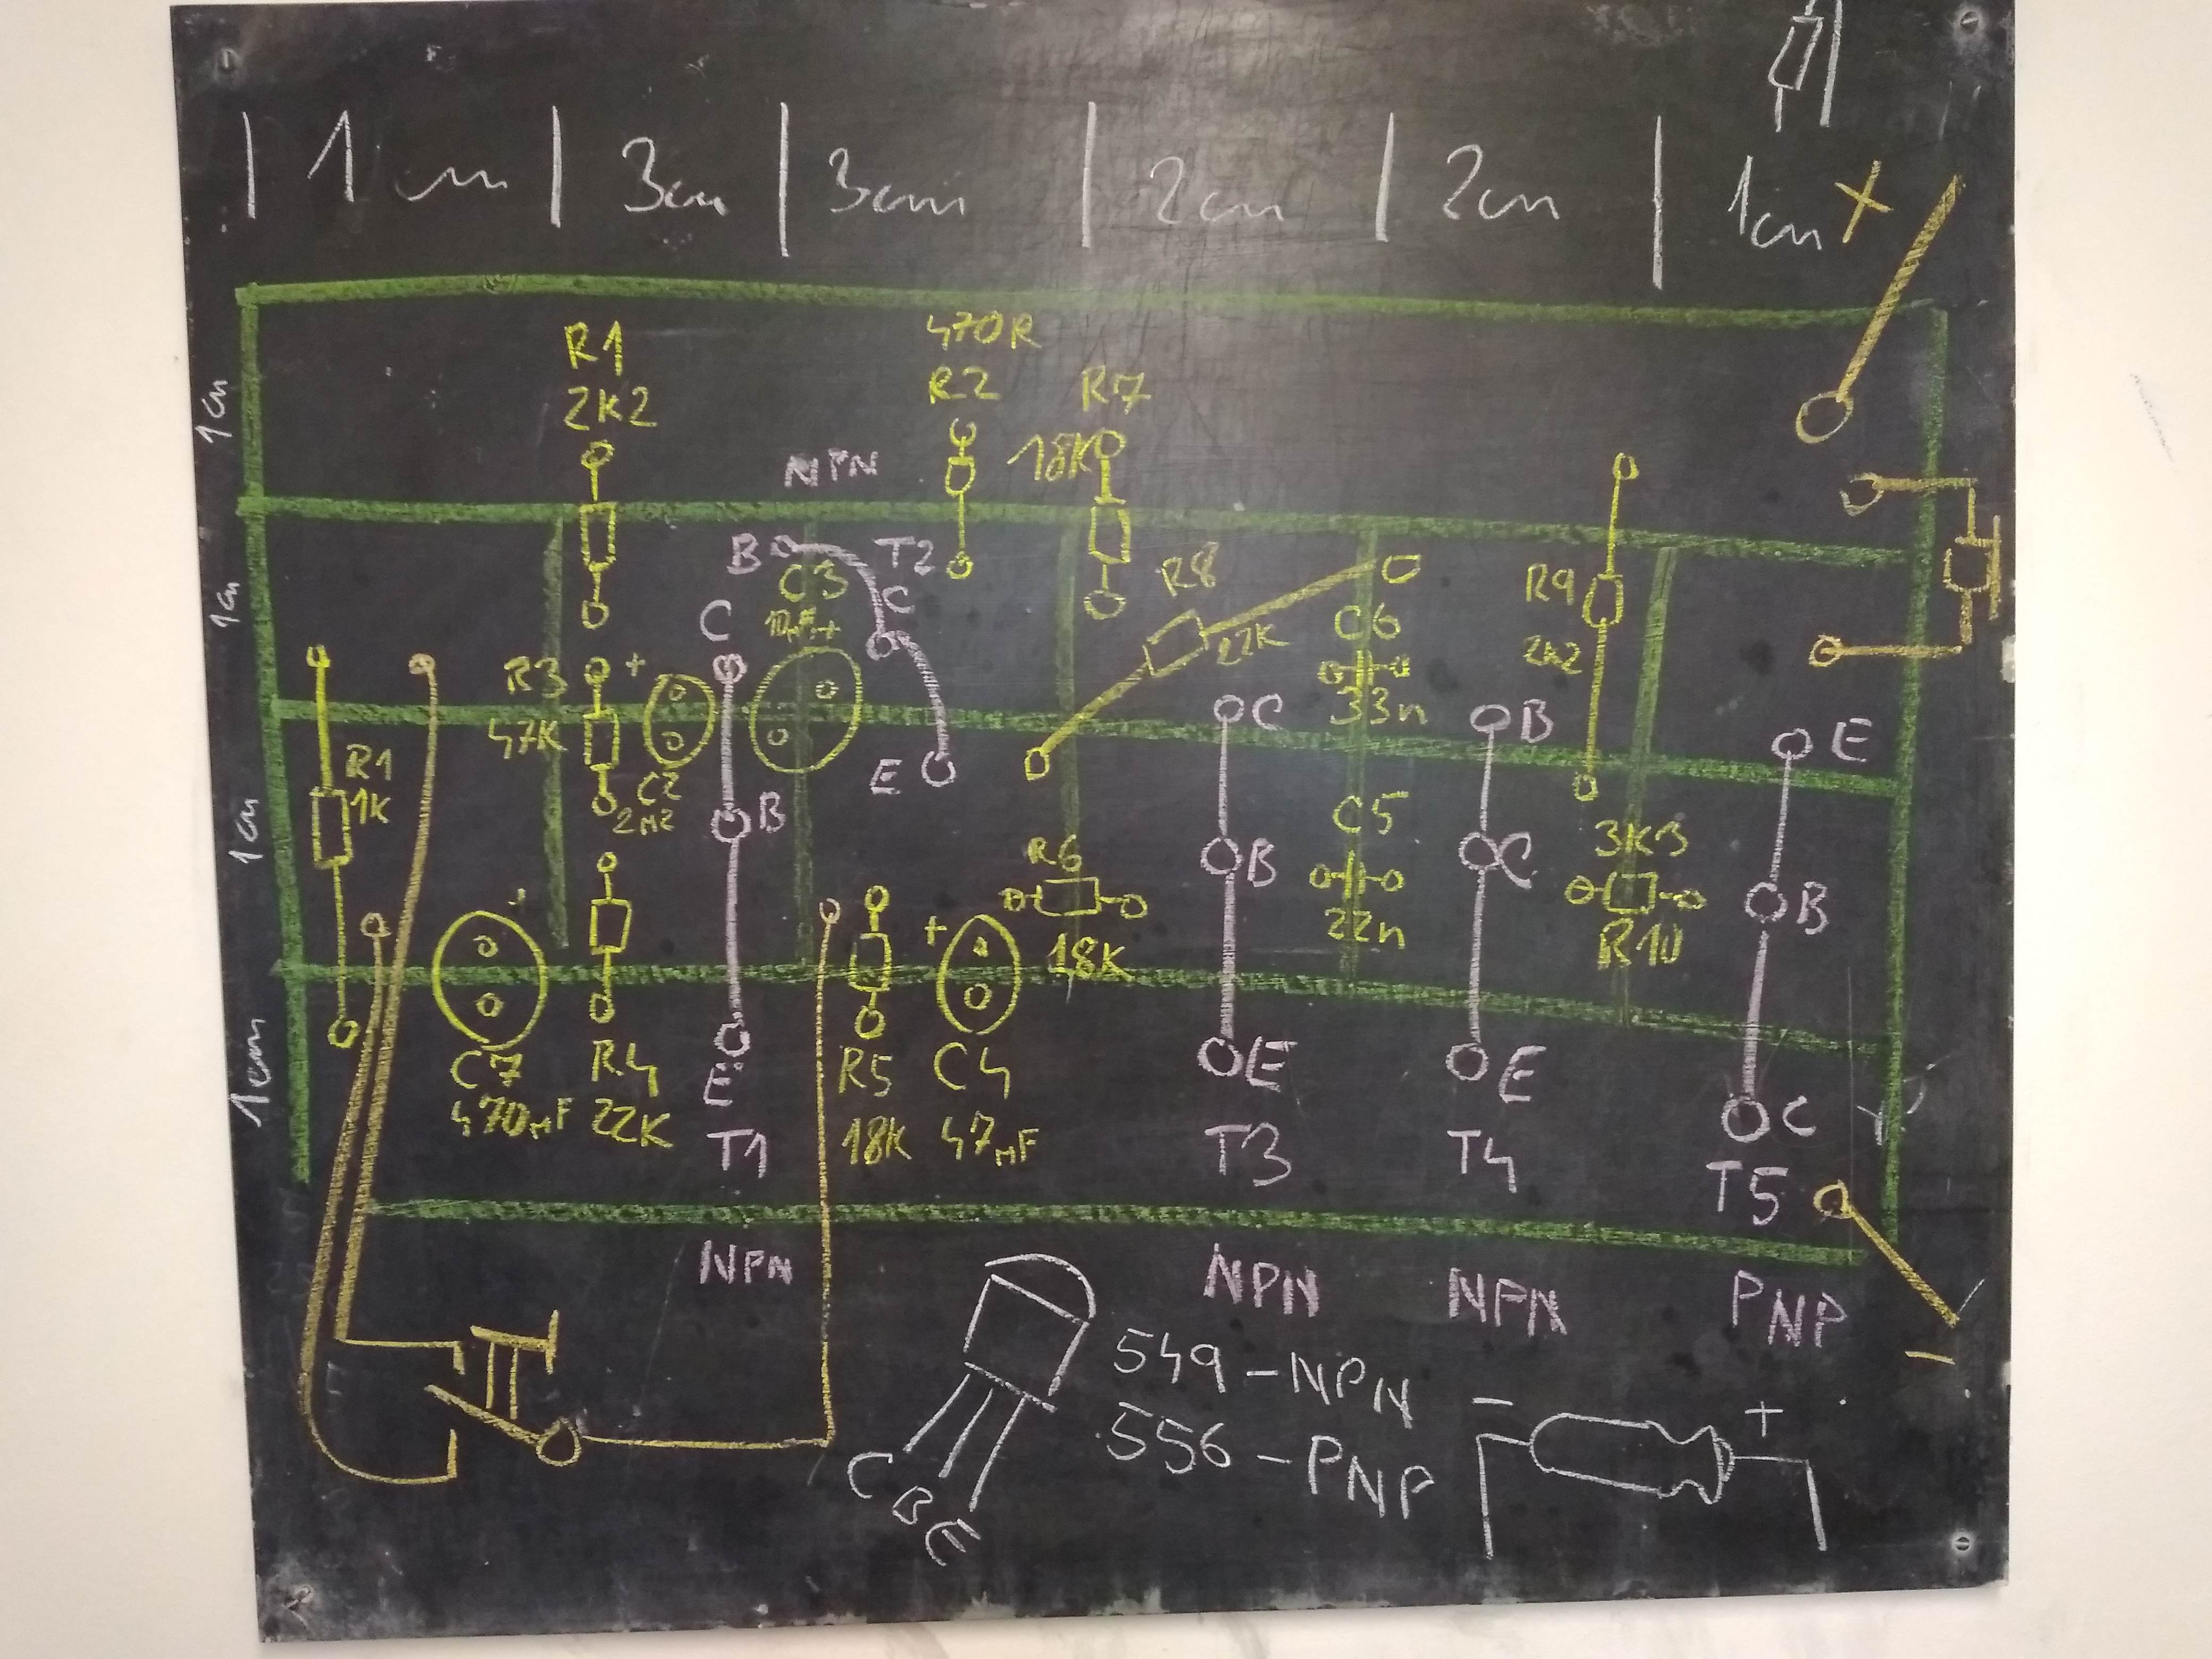 1cm
3cm
3cm
2cm
2cm
1cm
+
1cm
1cm
1cm
1cm
R1
2K2
470R
R2
R7
18K
NPN
B
T2
C3
10µF+
C
C
R8
22K
C6
33n
R9
2K2
R3
47K
+
C2
2M2
R1
1K
B
E
C
B
E
R6
18K
B
C5
22n
C
3K3
R10
B
+
C7
470µF
R4
22K
E
T1
R5
18K
+
C4
47µF
E
T3
E
T4
C
T5
NPN
NPN
NPN
PNP
549-NPN
556-PNP
C
B
E
-
+
-